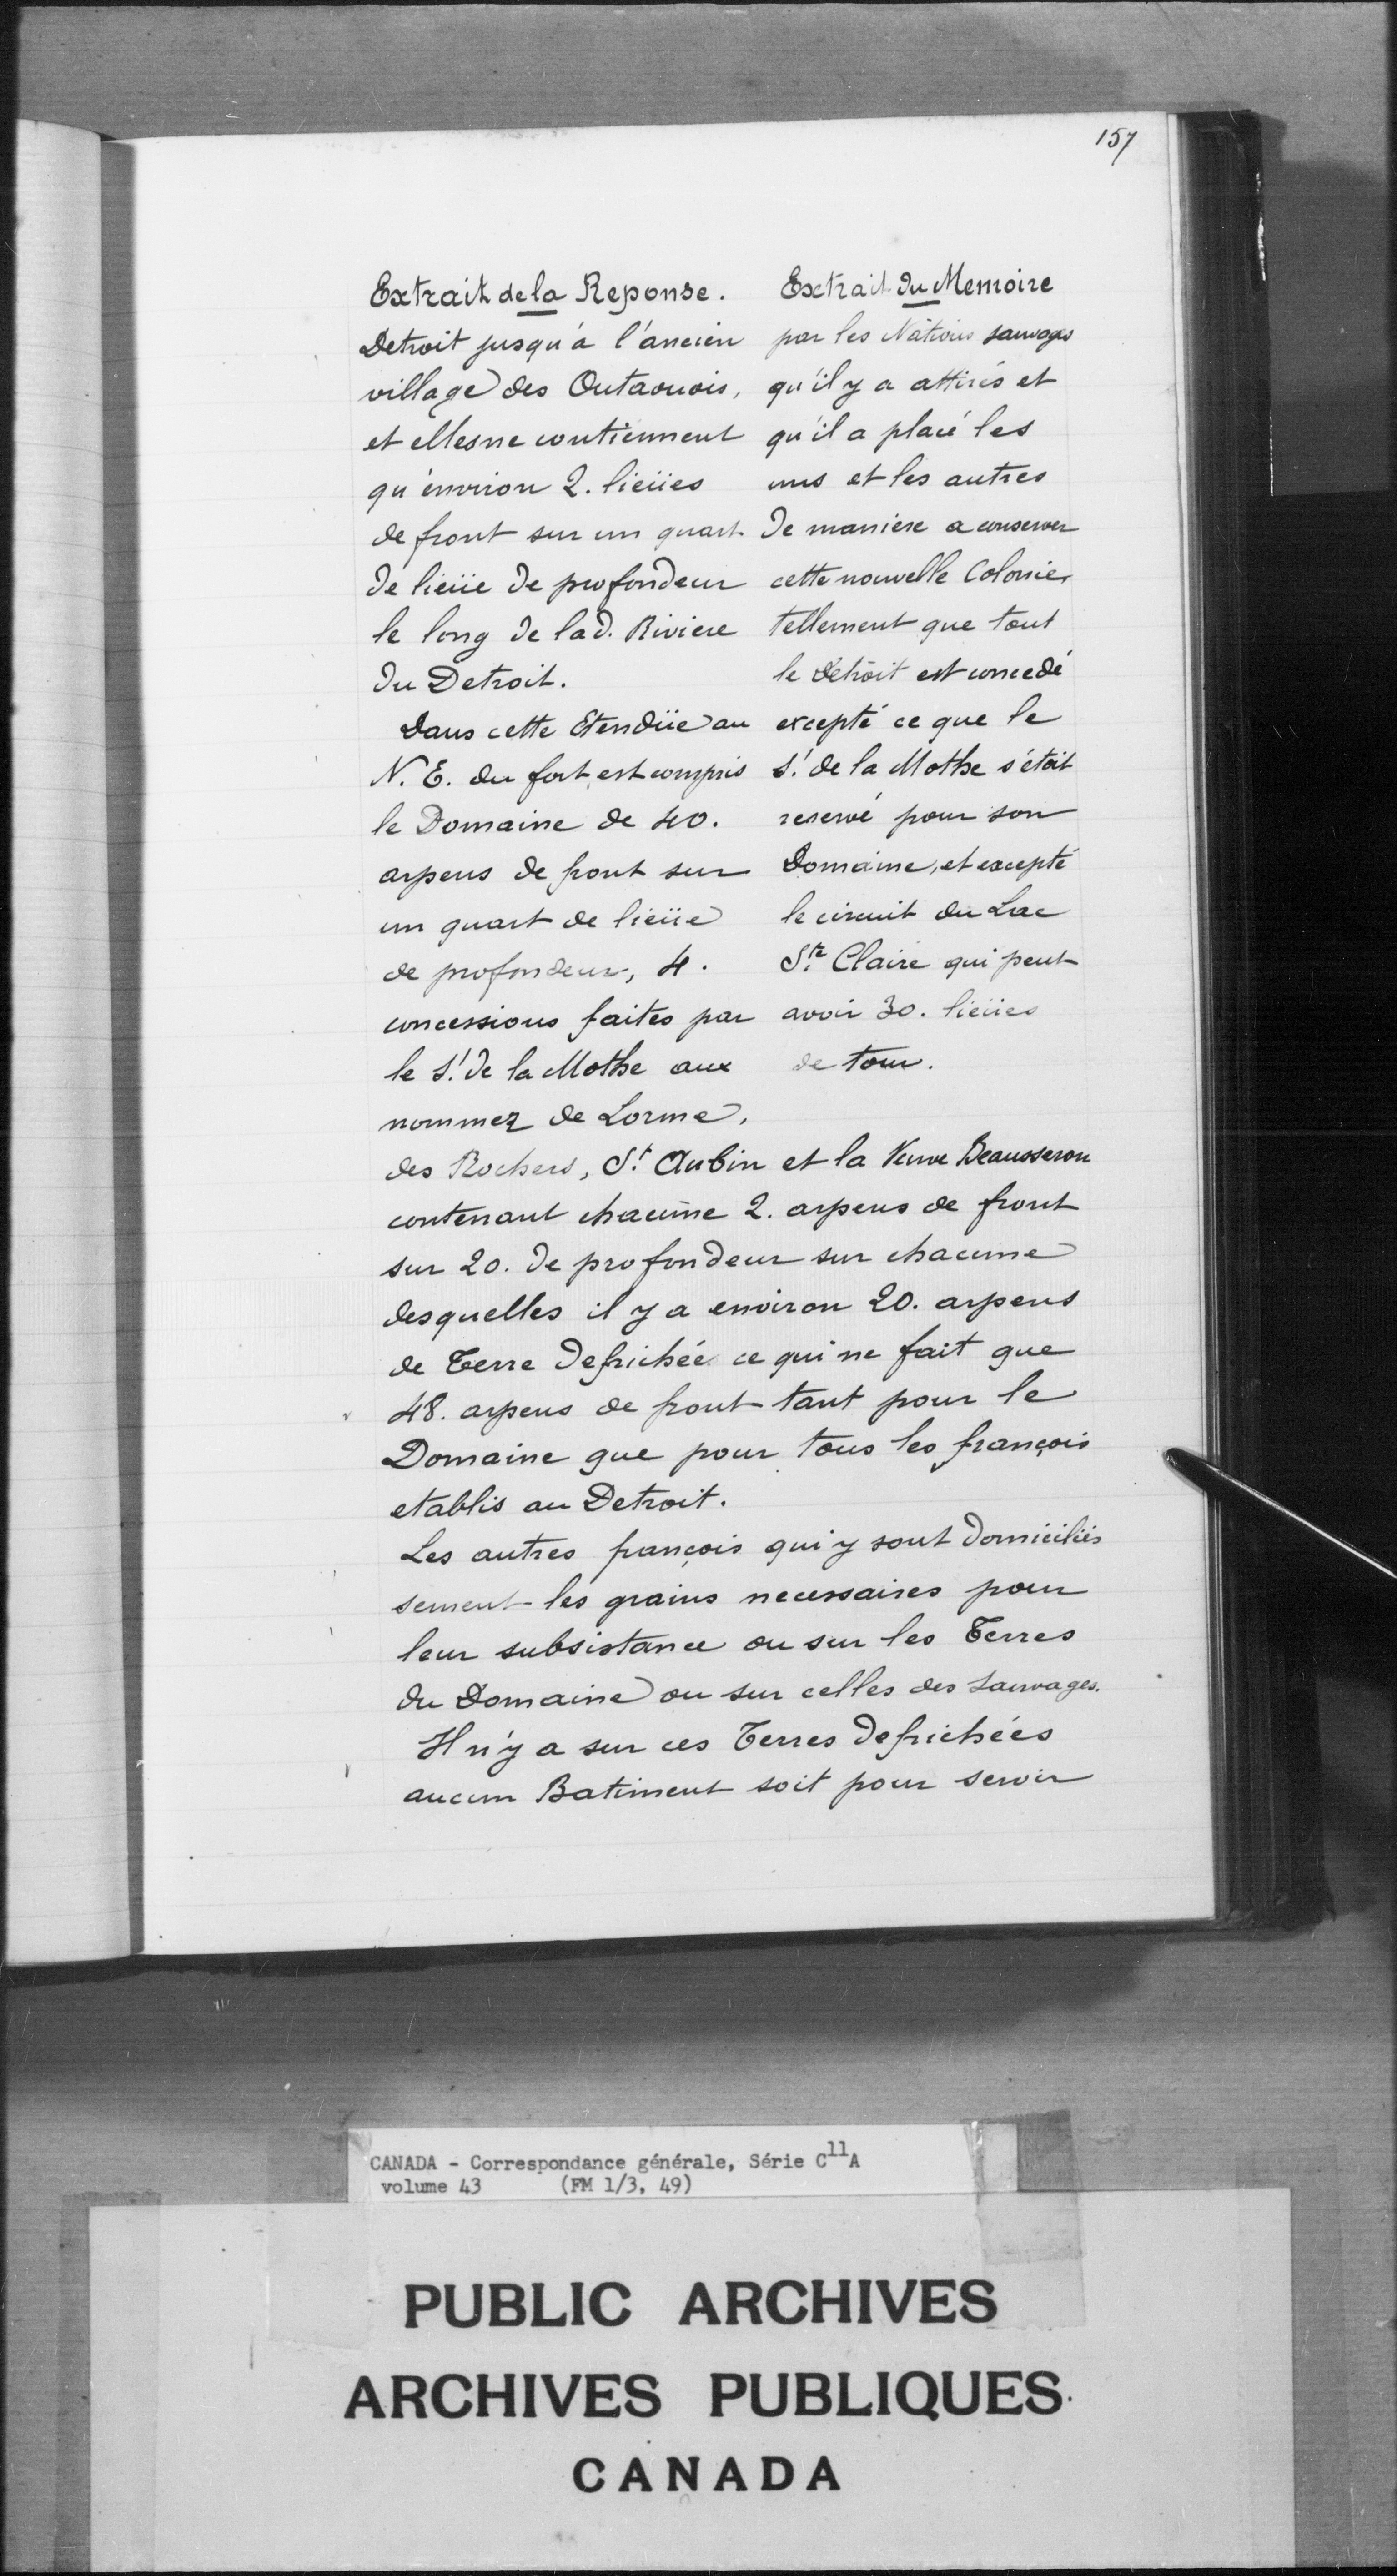 157
Extrait de la Reponse.
Detroit jusqu'à l'ancien
village des Outaouois,
et elles ne contiennent
qu'environ 2. lieües
de front sur un quart
de lieüe de profondeur
le long de lad. Riviere
du Detroit.
Dans cette Etendüe au
N. E. du fort est compris
le Domaine de 40.
arpens de front sur
un quart de lieüe
de profondeur, 4.
concessions faites par
le S.r de la Mothe aux
nommez de Lorme,
Extrait du Memoire
par les Nations sauvages
qu'il y a attirés et
qu'il a placé les
uns et les autres
de maniere a conserver
cette nouvelle Colonie,
tellement que tout
le Détroit est concedé
excepté ce que le
S.r de la Mothe s'étoit
reservé pour son
Domaine, et excepté
le circuit du Lac
S.te Claire qui peut
avoir 30. lieües
de tour.
des Rochers, S.t Aubin et la Veuve Beausseron
contenant chacune 2. arpens de front
sur 20. de profondeur sur chacune
desquelles il y a environ 20. arpens
de Terre defrichée ce qui ne fait que
48. arpens de front tant pour le
Domaine que pour tous les françois
etablis au Detroit.
Les autres françois qui y sont domiciliés
sement les grains necessaires pour
leur subsistance ou sur les Terres
du Domaine ou sur celles des sauvages.
Il n'y a sur ces Terres defrichées
aucun Batiment soit pour servir
CANADA - Correspondance générale, Série C11A
volume 43 (FM 1/3, 49)
PUBLIC ARCHIVES
ARCHIVES PUBLIQUES
CANADA